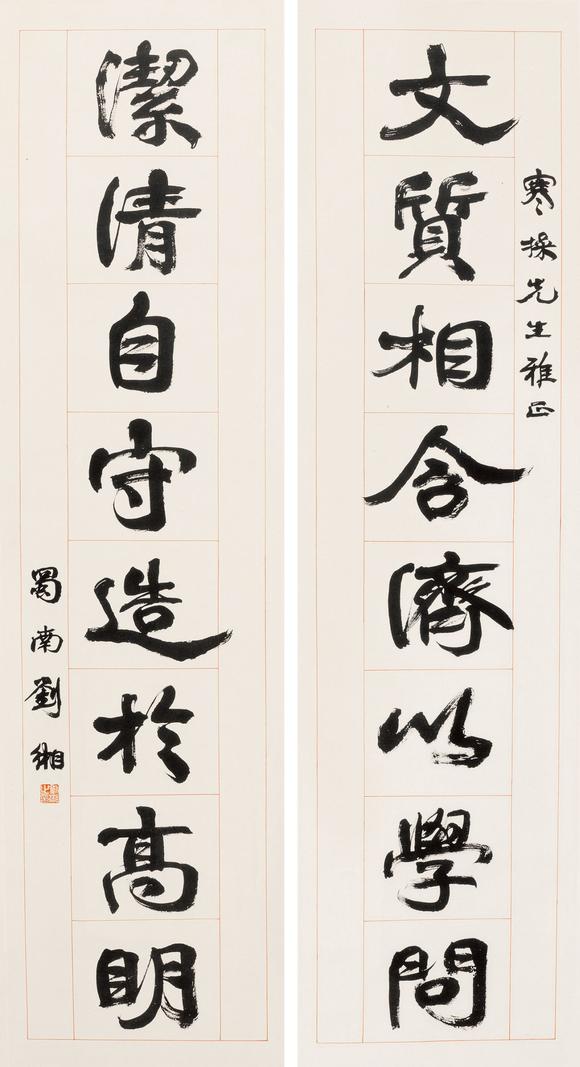 寒操先生雅正
文質相含濟以學問
潔清自守造於高明
蜀南劉湘